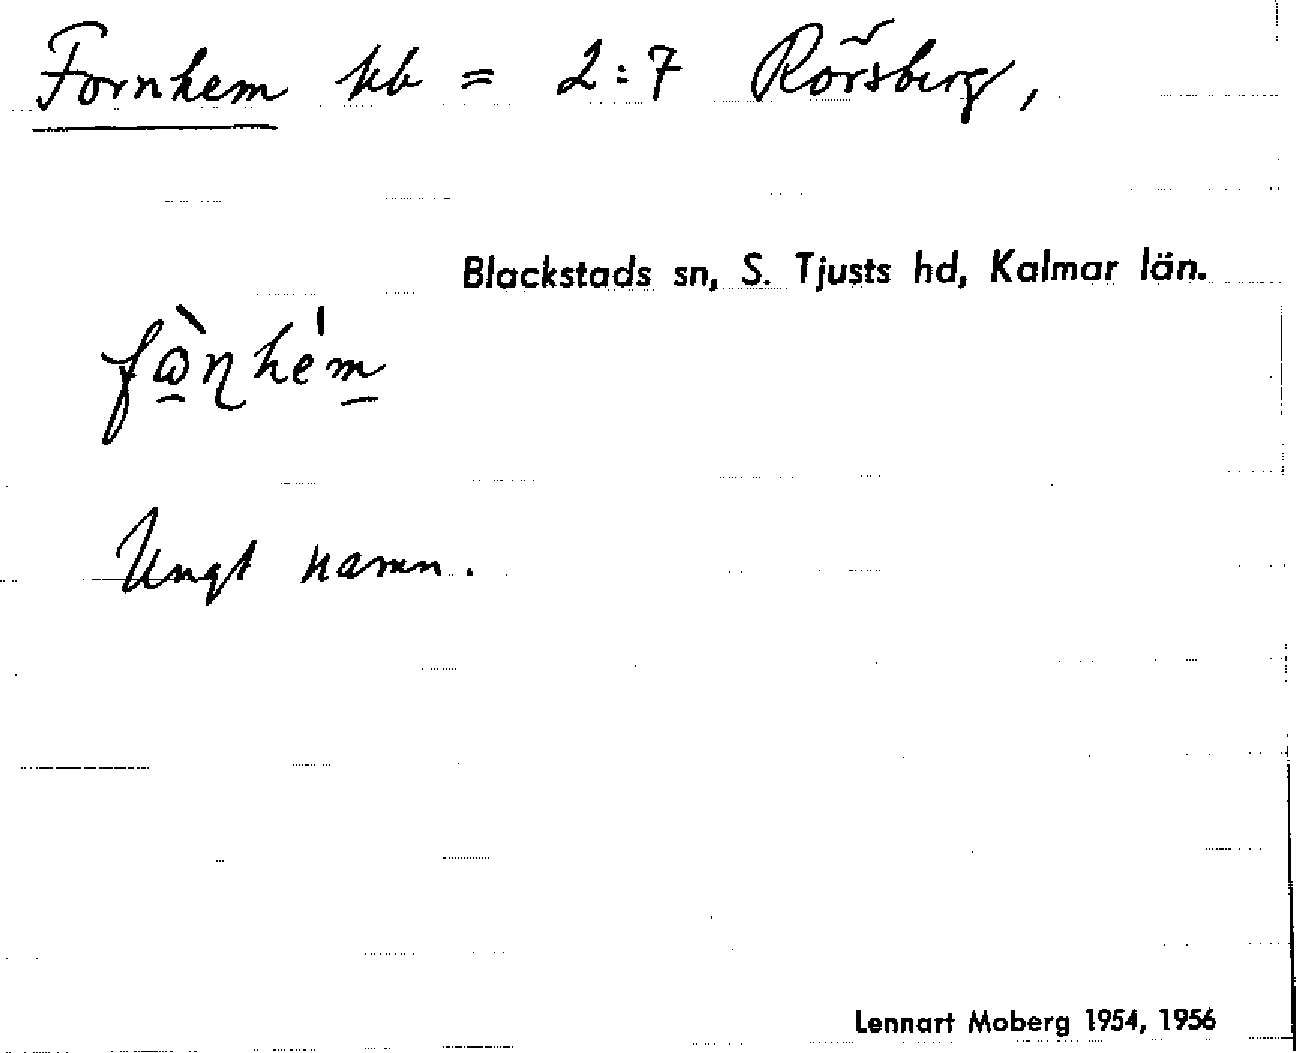 Fornhem hb = 2:7 Rörsberg,
Blackstads sn, S. Tjusts hd, Kalmar län.
Ungt namn.
Lennart Moberg 1954, 1956